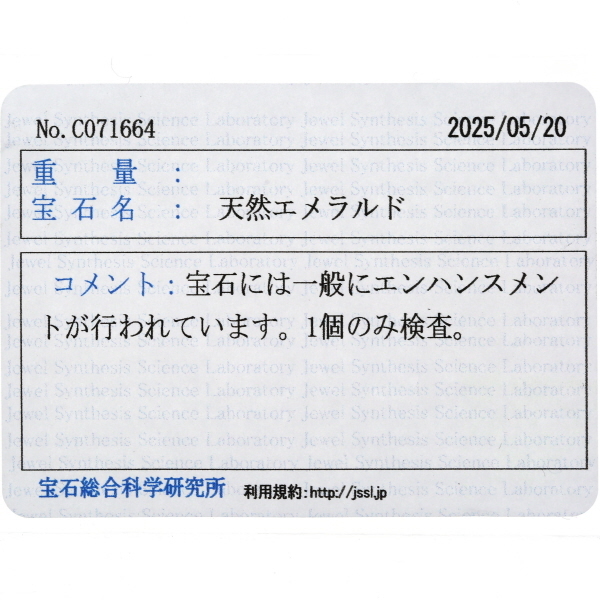 No.C071664 2025/05/20
重量:
宝石名: 天然エメラルド
コメント:宝石には一般にエンハンスメン
トが行われています。1個のみ検査。
宝石総合科学研究所 利用規約:http://jssl.jp
Jewel Synthesis Science Laboratory Jewel Synthesis Science Laboratory